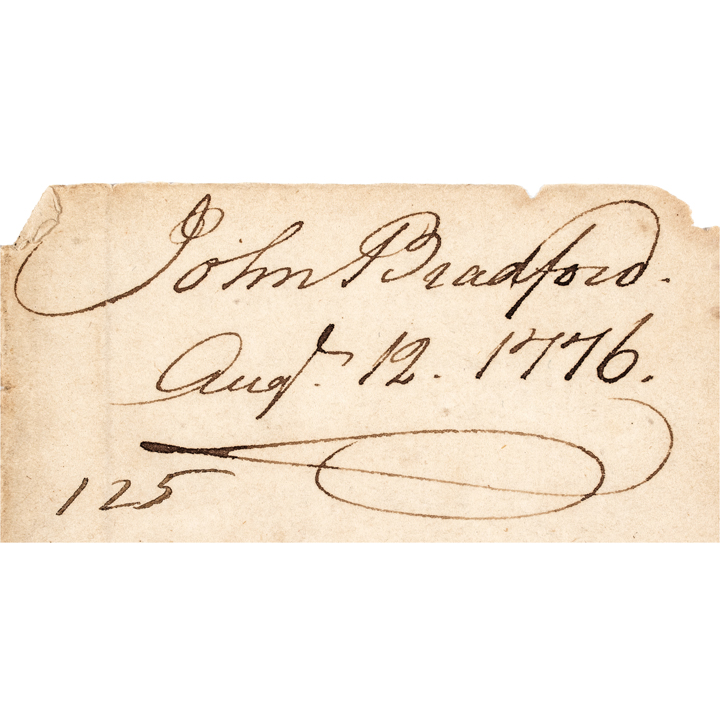 John Bradford.
Augt. 12. 1776.
125